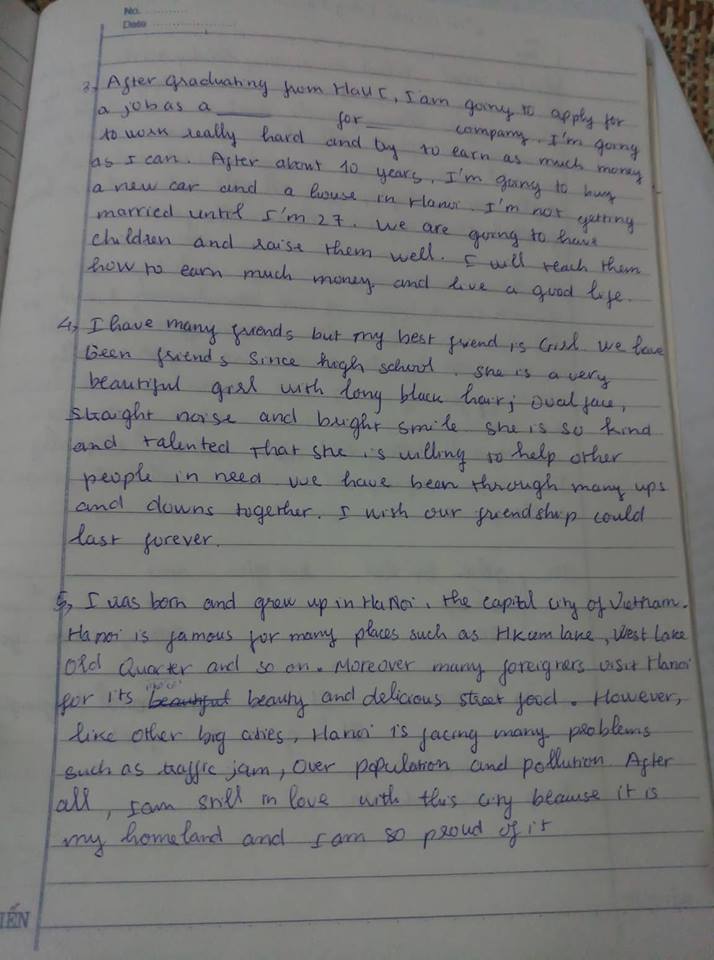 No.
Date
3, After graduating from HaUI, I am going to apply for
a job as a _____ for _____ company. I'm going
to work really hard and try to earn as much money
as I can. After about 10 years, I'm going to buy
a new car and a house in Hanoi. I'm not getting
married until I'm 27. We are going to have
children and raise them well. I will teach them
how to earn much money and live a good life.
4, I have many friends but my best friend is We have
been friends since high school. She is a very
beautiful girl with long black hair, oval face,
straight noise and bright smile she is so kind
and talented that she is willing to help other
people in need we have been through many ups
and downs together. I wish our friendship could
last forever.
5, I was born and grew up in HaNoi, the capital city of Vietnam.
Hanoi is famous for many places such as lake, West Lake
Old Quarter and so on. Moreover many foreigners visit Hanoi
for its beautiful beauty and delicious street food. However,
like other big cities, Hanoi is facing many problems
such as traffic jam, over population and pollution After
all, I am still in love with this city because it is
my homeland and I am so proud of it
IẾN